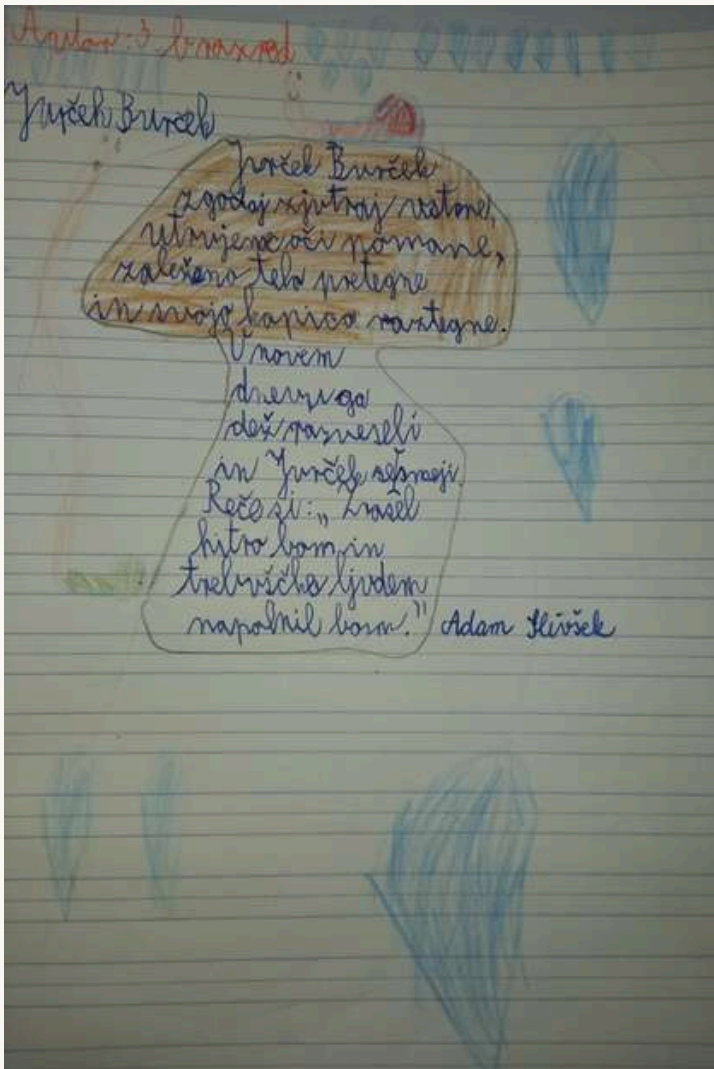 Jurček Burček
Jurček Burček
zgodaj zjutraj vstane,
utrujene oči pomane,
zaležano telo pretegne
in svojo kapico raztegne.
V novem
dnevu ga
dež razveseli
in Jurček se smeji.
Reče si: „Zrasel
hitro bom in
trebuščke ljudem
napolnil bom."
Adam Hivšek